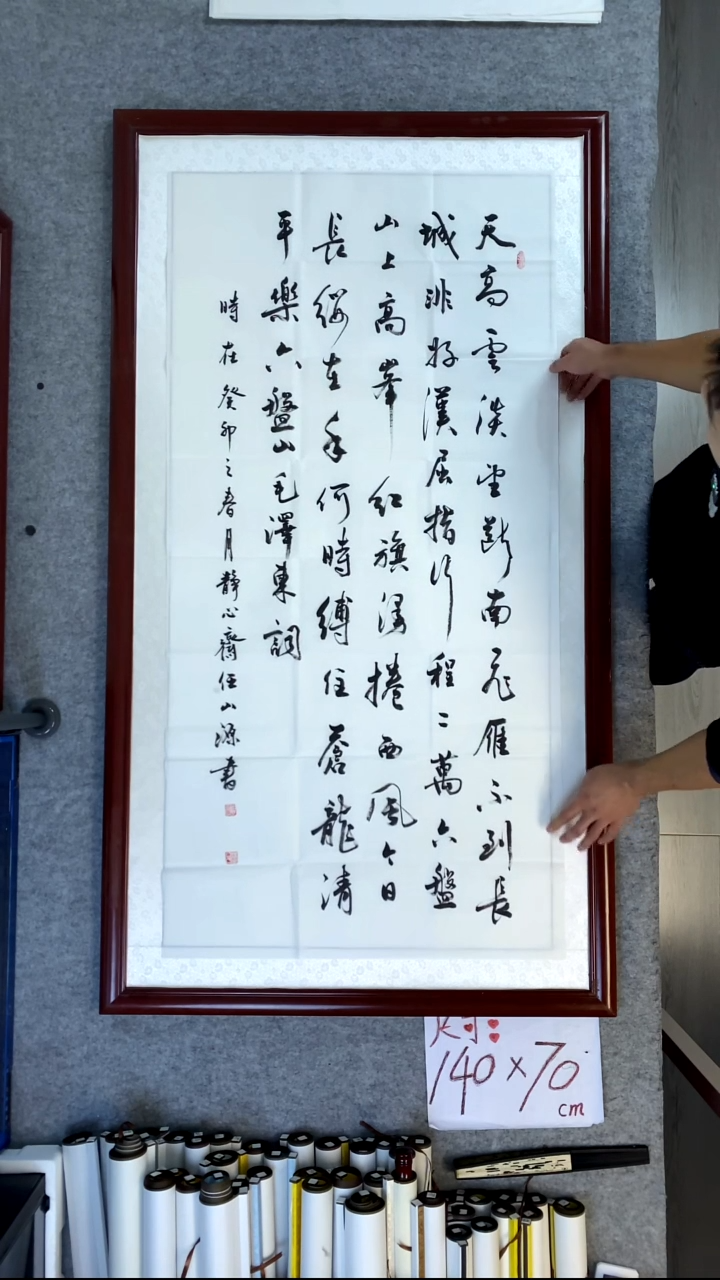 天高雲淡望斷南飛雁不到長
城非好漢屈指行程二萬六盤
山上高峯紅旗漫捲西風今日
長纓在手何時縛住蒼龍清
平樂六盤山毛澤東詞
時在癸卯之春月靜心齋任山源書
140×70
cm